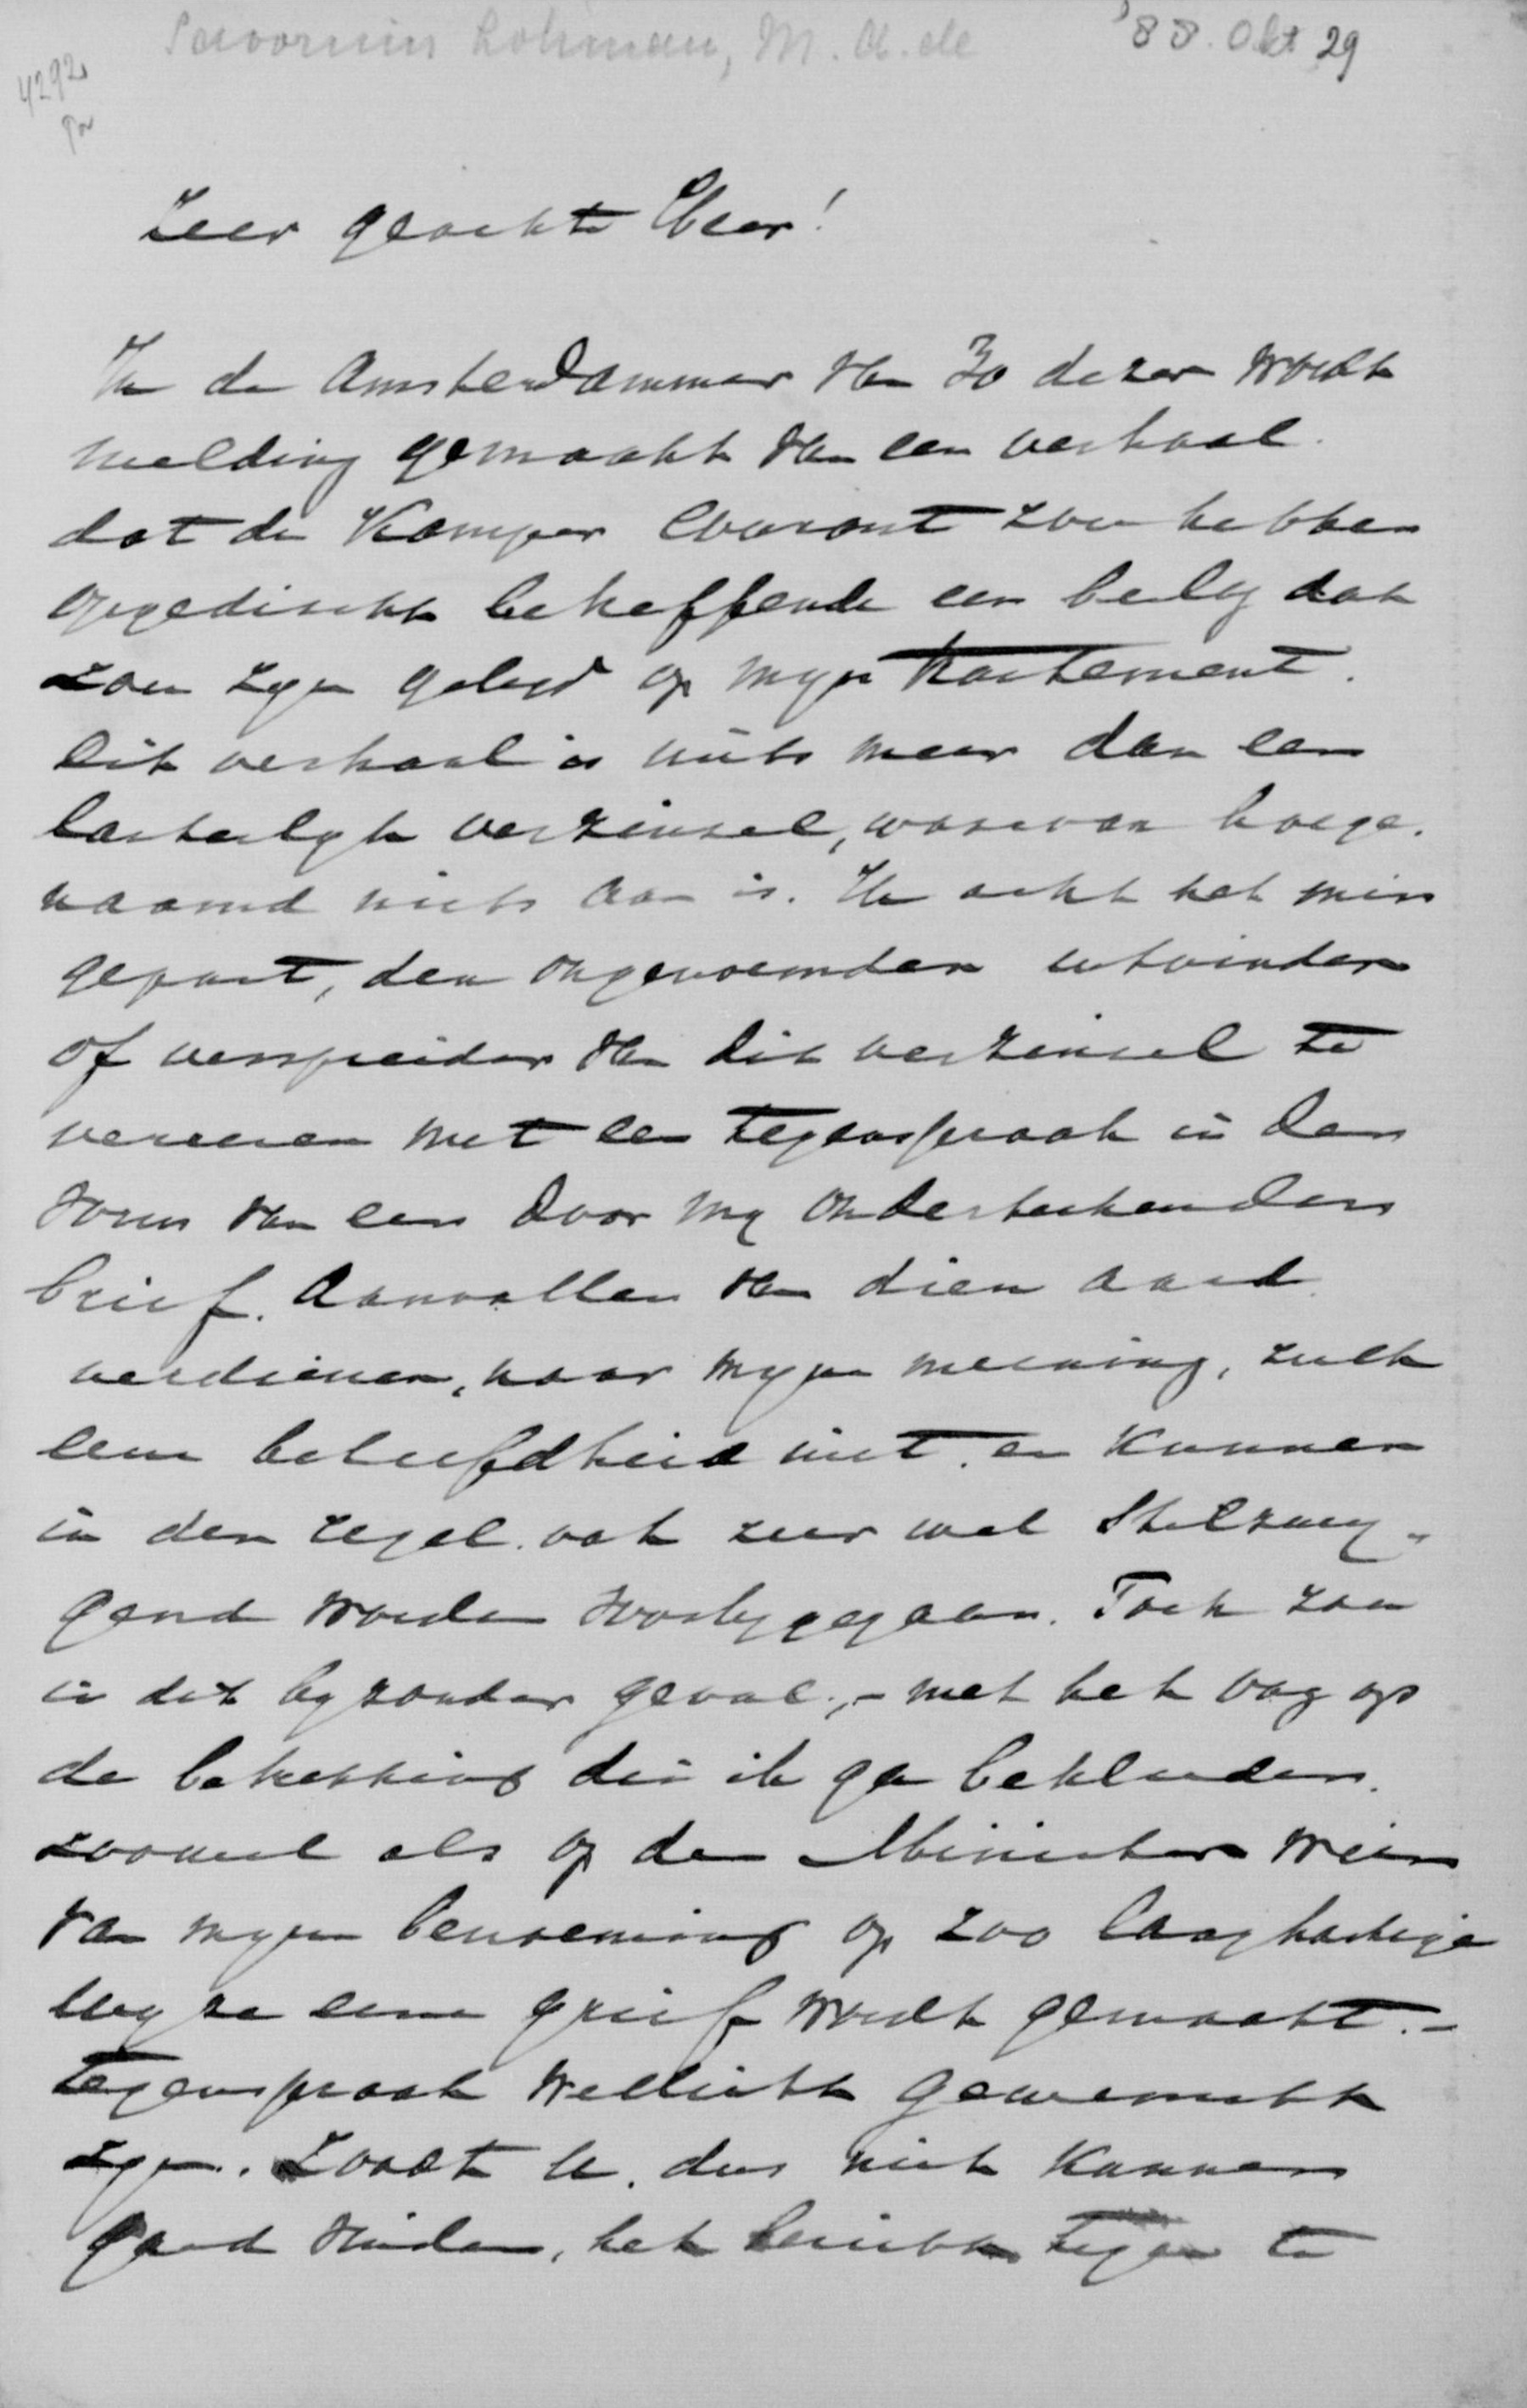 Savornin Lohman, M. A. de '88. Okt 29
4292
Zeer geachte Heer!
In de Amsterdammer van 30 dezer wordt
melding gemaakt van een verhaal
dat de Kamper Courant zou hebben
opgedischt betreffende een beslag dat
zou zyn gelegd op myn tractement.
Dit verhaal is niets meer dan een
lasterlyk verzinsel, waarvan hoege-
naamd niets aan is. Ik acht het min
gepast, den ongenoemden uitvinder
of verspreider van dit verzinsel te
vereeren met een tegenspraak in den
vorm van een door my onderteekenden
brief. Aanvallen van dien aard
verdienen, naar myn meening, zulk
eene beleefdheid niet en kunnen
in den regel ook zeer wel stilzwy-
gend worden voorbygegaan. Toch zou
in dit byzonder geval, - met het oog op
de betrekking die ik ga bekleeden
zoowel als op den Minister wien
van myne benoeming op zoo laaghartige
wyze eene grief wordt gemaakt. -
tegenspraak wellicht gewenscht
zyn. Zoudt U. dus niet kunnen
goed vinden, het bericht tegen te